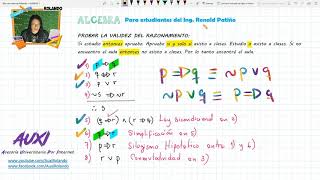 ROLANDO
ALGEBRA Para estudiantes del Ing. Renald Patiño
PROBAR LA VALIDEZ DEL RAZONAMIENTO:
Si estudio entonces apruebo. Apruebo si y solo si asisto a clases. Estudio o asisto a clases. Si no
encuentro el aula entonces no asisto a clases. Por lo tanto encontré el aula.
p ⇒ q ≡ ~p ∨ q
∴ s
5) (q ⇒ r) ∧ (r ⇒ q) Ley bicondicional en 2)
Simplificación en 5)
7) p ⇒ r Silogismo Hipotético entre 1) y 6)
8) r ∨ p Conmutatividad en 3)
AUXI
Asesoría Universitaria Por Internet
www.youtube.com/AuxiRolando
www.facebook.com/AuxiRolando